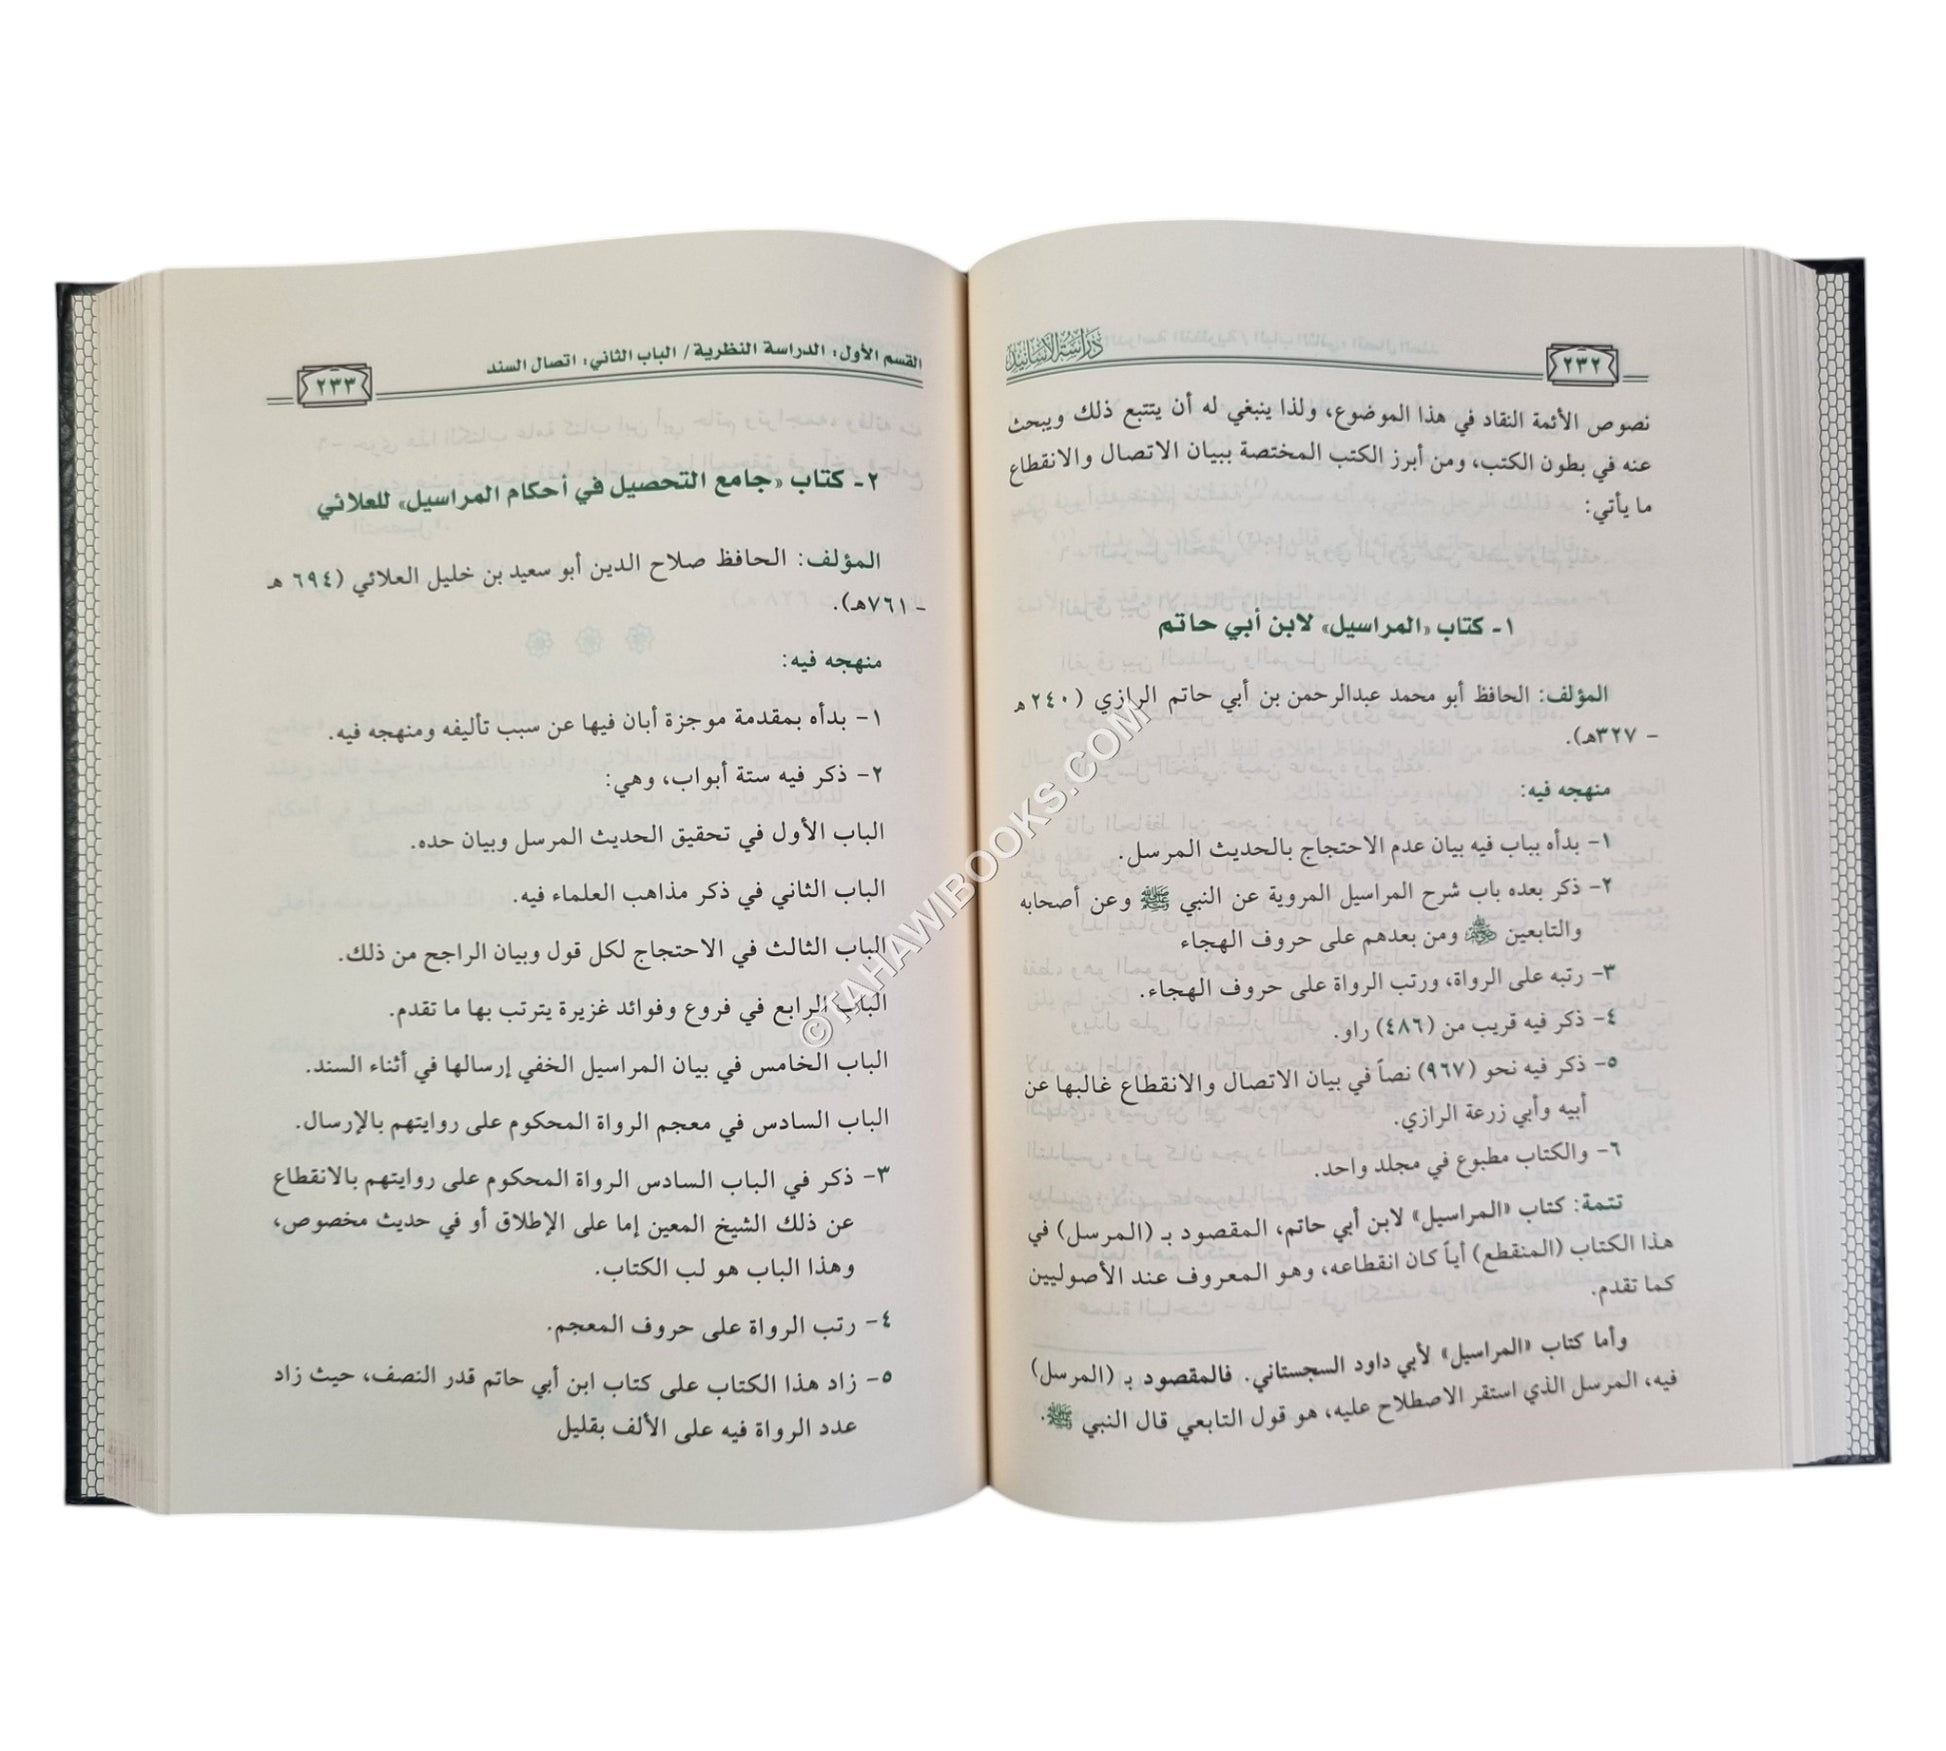 دراسة الأسانيد
٢٣٢
نصوص الأئمة النقاد في هذا الموضوع، ولذا ينبغي له أن يتتبع ذلك ويبحث
عنه في بطون الكتب، ومن أبرز الكتب المختصة ببيان الاتصال والانقطاع
ما يأتي:
١- كتاب «المراسيل» لابن أبي حاتم
المؤلف: الحافظ أبو محمد عبدالرحمن بن أبي حاتم الرازي (٢٤٠ هـ
- ٣٢٧هـ).
منهجه فيه:
١- بدأه بباب فيه بيان عدم الاحتجاج بالحديث المرسل.
٢- ذكر بعده باب شرح المراسيل المروية عن النبي ﷺ وعن أصحابه
والتابعين ﷺ ومن بعدهم على حروف الهجاء
٣- رتبه على الرواة، ورتب الرواة على حروف الهجاء.
٤- ذكر فيه قريب من (٤٨٦) راو.
٥- ذكر فيه نحو (٩٦٧) نصاً في بيان الاتصال والانقطاع غالبها عن
أبيه وأبي زرعة الرازي.
٦- والكتاب مطبوع في مجلد واحد.
تتمة: كتاب «المراسيل» لابن أبي حاتم، المقصود بـ (المرسل) في
هذا الكتاب (المنقطع) أياً كان انقطاعه، وهو المعروف عند الأصوليين
كما تقدم.
وأما كتاب «المراسيل» لأبي داود السجستاني. فالمقصود بـ (المرسل)
فيه، المرسل الذي استقر الاصطلاح عليه، هو قول التابعي قال النبي ﷺ.
القسم الأول: الدراسة النظرية / الباب الثاني: اتصال السند
٢٣٣
٢- كتاب «جامع التحصيل في أحكام المراسيل» للعلائي
المؤلف: الحافظ صلاح الدين أبو سعيد بن خليل العلائي (٦٩٤ هـ
- ٧٦١هـ).
منهجه فيه:
١- بدأه بمقدمة موجزة أبان فيها عن سبب تأليفه ومنهجه فيه.
٢- ذكر فيه ستة أبواب، وهي:
الباب الأول في تحقيق الحديث المرسل وبيان حده.
الباب الثاني في ذكر مذاهب العلماء فيه.
الباب الثالث في الاحتجاج لكل قول وبيان الراجح من ذلك.
الباب الرابع في فروع وفوائد غزيرة يترتب بها ما تقدم.
الباب الخامس في بيان المراسيل الخفي إرسالها في أثناء السند.
الباب السادس في معجم الرواة المحكوم على روايتهم بالإرسال.
٣- ذكر في الباب السادس الرواة المحكوم على روايتهم بالانقطاع
عن ذلك الشيخ المعين إما على الإطلاق أو في حديث مخصوص،
وهذا الباب هو لب الكتاب.
٤- رتب الرواة على حروف المعجم.
٥- زاد هذا الكتاب على كتاب ابن أبي حاتم قدر النصف، حيث زاد
عدد الرواة فيه على الألف بقليل
©TAHAWIBOOKS.COM